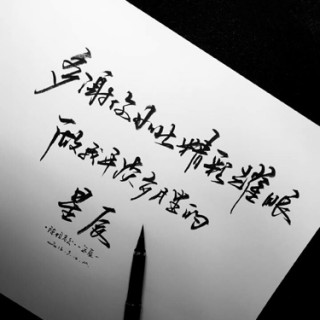 多谢你如此精彩耀眼
做我平淡岁月里的
星辰